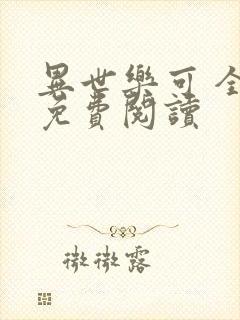 異世樂可 全
免費閱讀
微微露